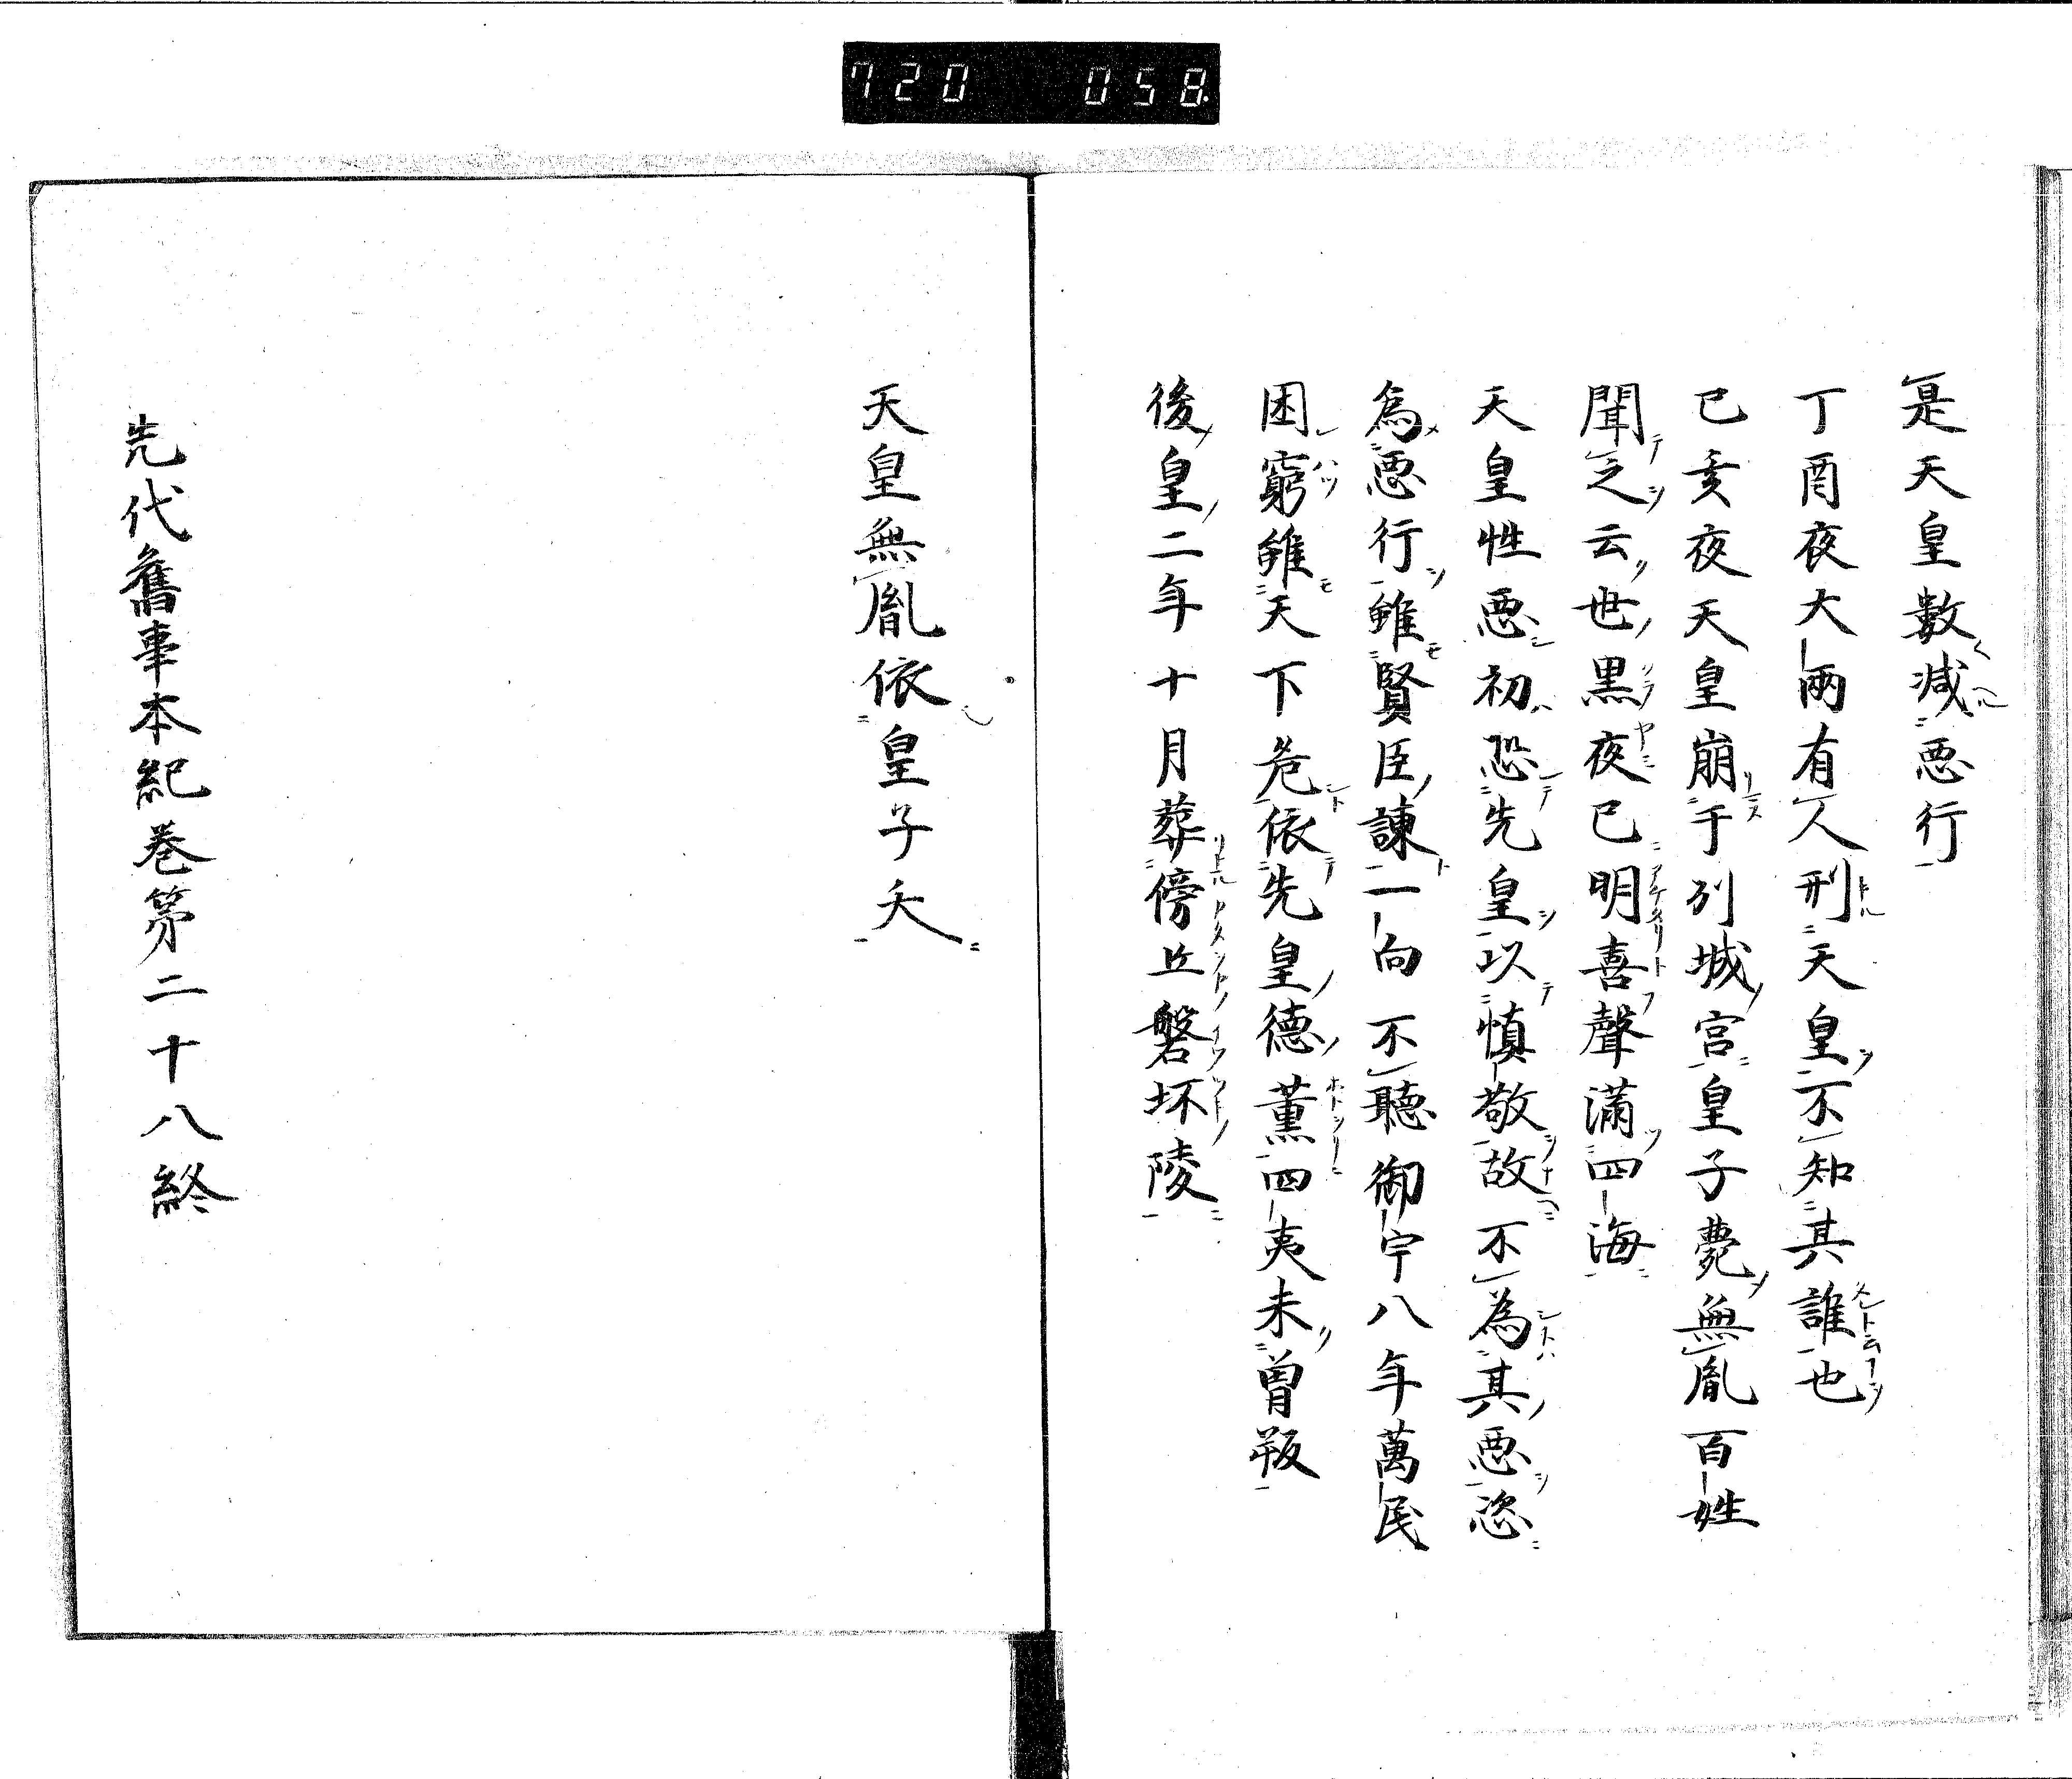 720 058
是天皇數减惡行
丁酉夜大雨有人刑天皇不知其誰也
已亥夜天皇崩于列城宮皇子薨無胤百姓
聞之云世黒夜已明喜聲滿四海
天皇性惡初恐先皇以慎敬故不為其惡恣
為惡行雖賢臣諫一向不聽御宇八年萬民
困窮雖天下危依先皇德薫四夷未曽叛
後皇二年十月葬傍丘磐坏陵
天皇無胤依皇子夭
先代舊事本紀巻第二十八終